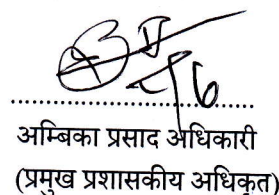 अम्बिका प्रसाद अधिकारी
(प्रमुख प्रशासकीय अधिकृत)